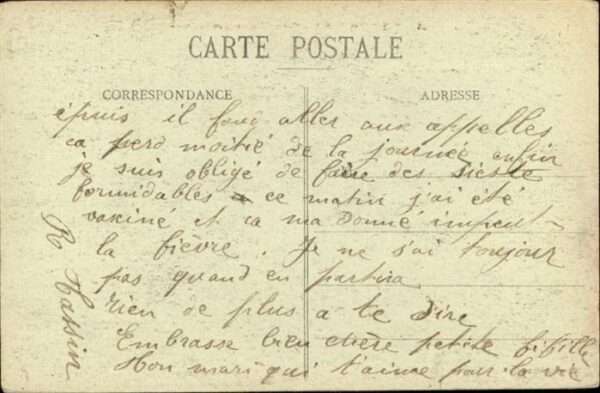 CARTE POSTALE
CORRESPONDANCE
ADRESSE
épuis il fauq alles aux appelles
ca perd moitié de la journée enfin
je suis obligé de faire des sieste
formidables ce matin j'ai été
vakiné et ca ma donné im peut
la fièvre. Je ne s'ai toujour
pas quand en partira
rien de plus a te dire
Embrasse bien chère petite fifille
Ton mari qui t'aime pour la vie
R Hassin